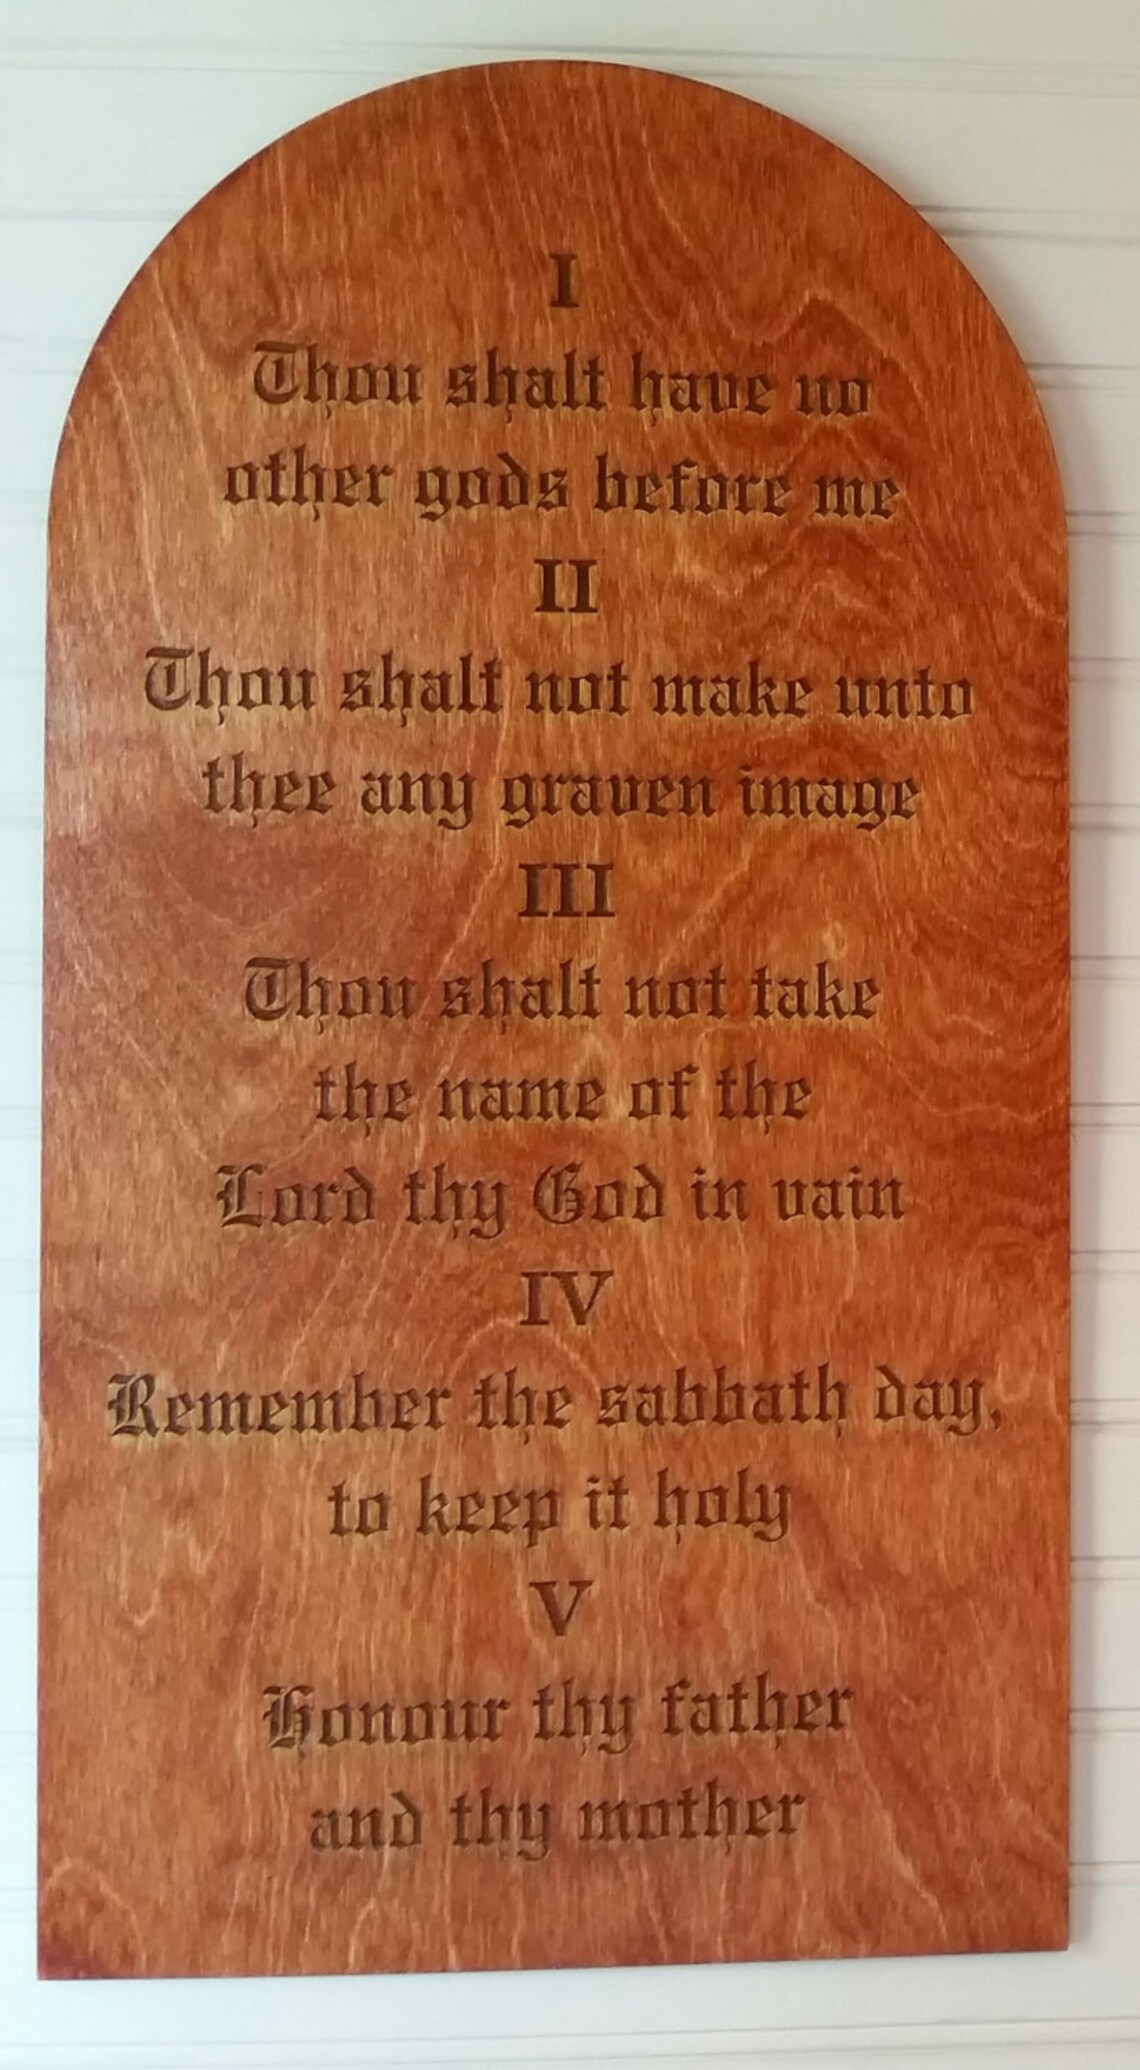 I
Thou shalt have no
other gods before me
II
Thou shalt not make unto
thee any graven image
III
Thou shalt not take
the name of the
Lord thy God in vain
IV
Remember the sabbath day,
to keep it holy
V
Honour thy father
and thy mother